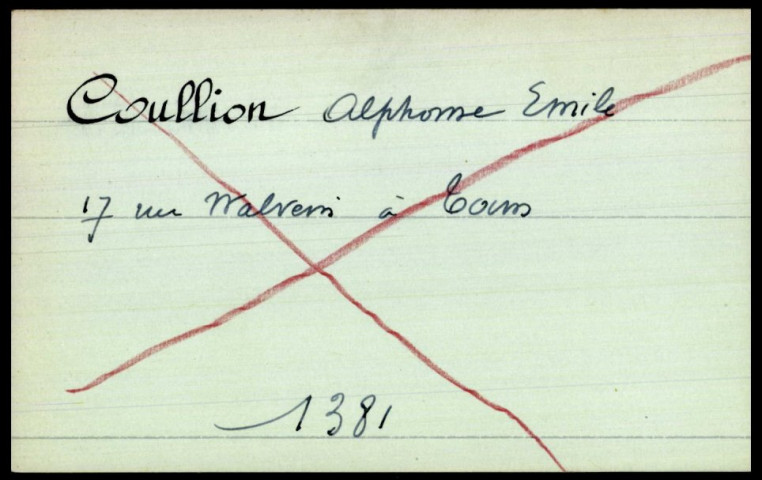 Coullion Alphonse Emile
17 rue Walvein à Tours
1381